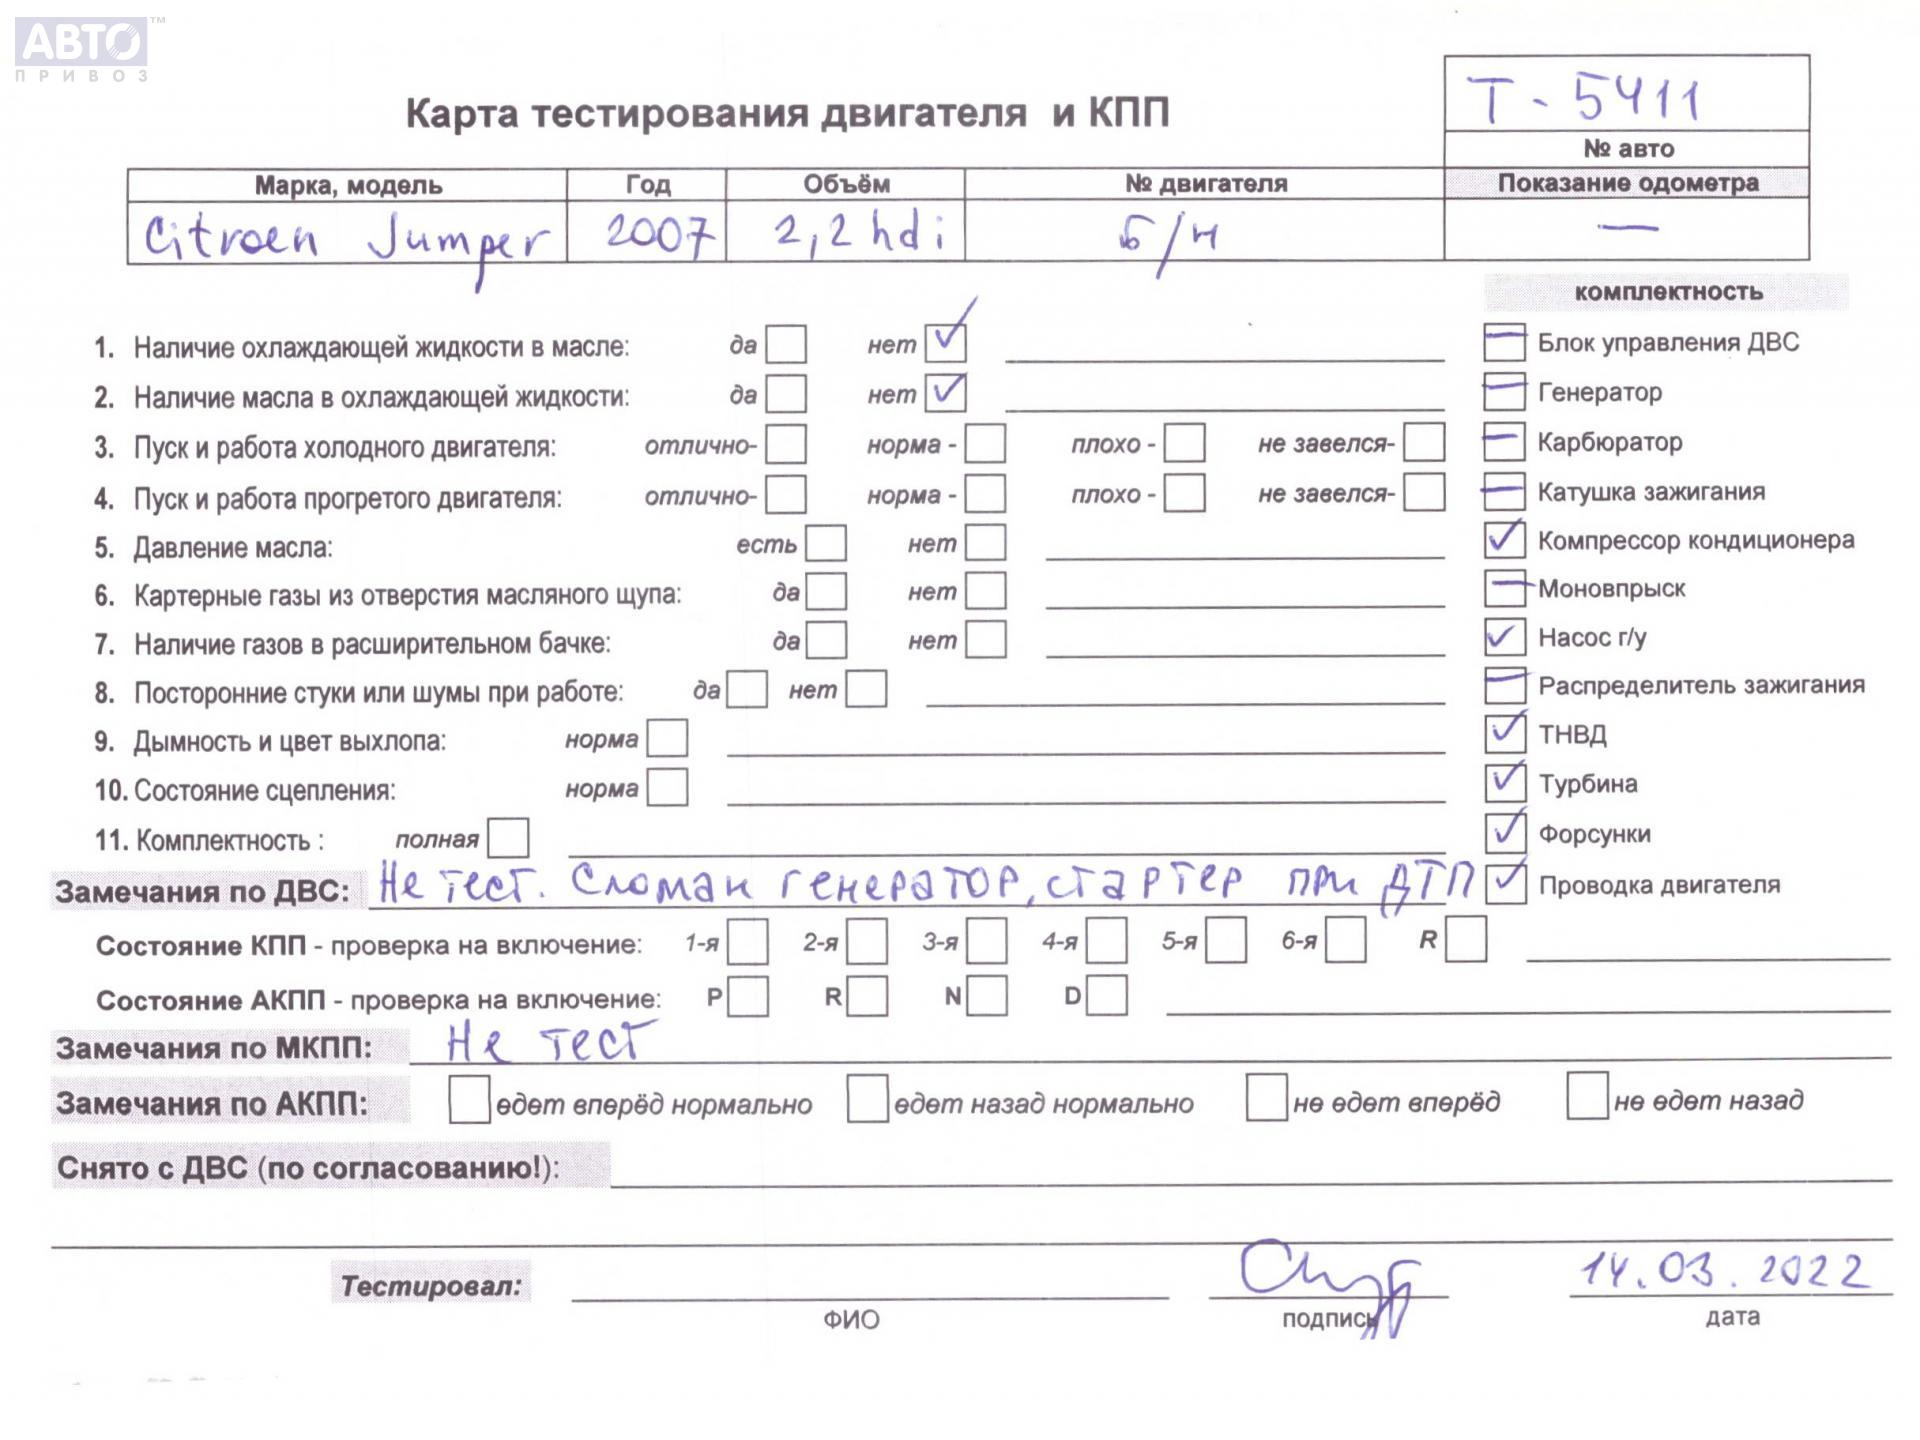 АВТО ™
ПРИВОЗ
Т - 5411
Карта тестирования двигателя и КПП
№ авто
Марка, модель Год Объём № двигателя Показание одометра
Citroen Jumper 2007 2,2 hdi б/н —
комплектность
1. Наличие охлаждающей жидкости в масле: да нет ✓ Блок управления ДВС
2. Наличие масла в охлаждающей жидкости: да нет ✓ Генератор
3. Пуск и работа холодного двигателя: отлично- норма - плохо - не завелся- Карбюратор
4. Пуск и работа прогретого двигателя: отлично- норма - плохо - не завелся- Катушка зажигания
5. Давление масла: есть нет ✓ Компрессор кондиционера
6. Картерные газы из отверстия масляного щупа: да нет Моновпрыск
7. Наличие газов в расширительном бачке: да нет ✓ Насос г/у
8. Посторонние стуки или шумы при работе: да нет Распределитель зажигания
9. Дымность и цвет выхлопа: норма ✓ ТНВД
10. Состояние сцепления: норма ✓ Турбина
11. Комплектность : полная ✓ Форсунки
Замечания по ДВС: Не тест. Сломан генератор, стартер при ДТП ✓ Проводка двигателя
Состояние КПП - проверка на включение: 1-я 2-я 3-я 4-я 5-я 6-я R
Состояние АКПП - проверка на включение: P R N D
Замечания по МКПП: Не тест
Замечания по АКПП: едет вперёд нормально едет назад нормально не едет вперёд не едет назад
Снято с ДВС (по согласованию!):
Тестировал: 14.03.2022
ФИО подпись дата